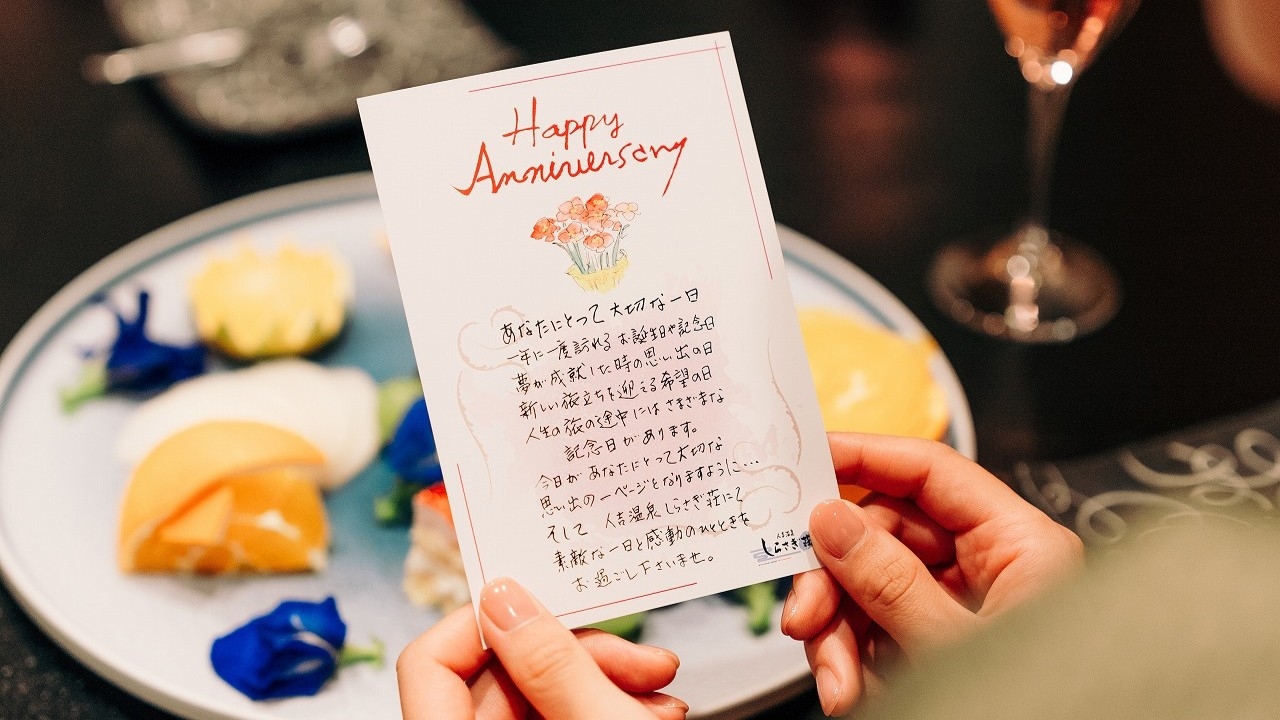 Happy
Anniversary
あなたにとって大切な一日
一年に一度訪れるお誕生日や記念日
夢が成就した時の思い出の日
新しい旅立ちを迎える希望の日
人生の旅の途中にはさまざまな
記念日があります。
今日があなたにとって大切な
思い出の一ページとなりますように…
そして 人吉温泉しらさぎ荘にて
素敵な一日と感動のひとときを
お過ごし下さいませ。
人吉温泉
しらさぎ荘